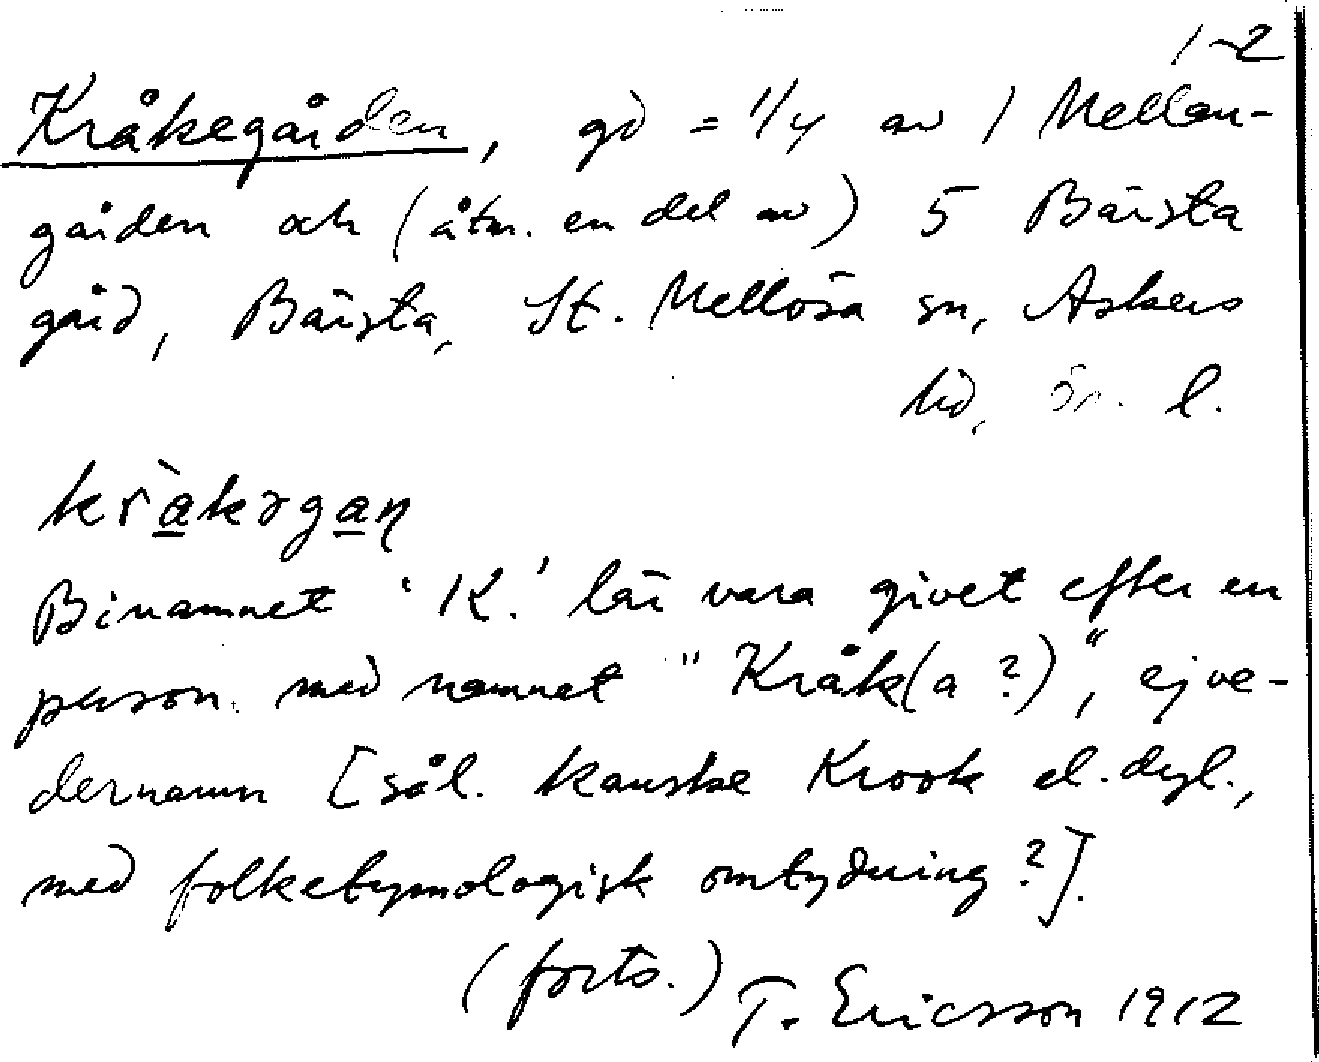 1-2
Kråkegården, gd = 1/4 av 1 Mellan-
gården och (åtm. en del av) 5 Bärsta
gård, Bärsta, St. Mellösa sn, Askers
hd, Ör. l.
kråkəgaɳ
Binamnet 'K.' lär vara givet efter en
person med namnet "Kråk(a ?)", ej ve-
dernamn [sål. kanske Krook el. dyl.,
med folketymologisk omtydning ?].
(forts.) T. Ericsson 1912